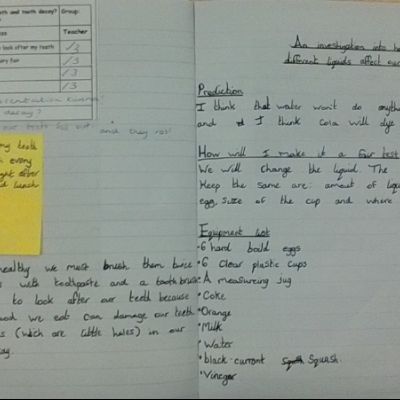 th and tooth decay?
Group:
Teacher
look after my teeth
/3
ry fair
/3
/3
/3
decay?
our teeth fall out and they rot!
my teeth
every
ght after
lunch
healthy we must brush them twice
with toothpaste and a toothbrush
to look after our teeth because
we eat can damage our teeth
(which are little holes) in our
An investigation into ho
different liquids affect our
Prediction
I think that water won't do anythi
and I think Cola will dye
How will I make it a fair test
We will change the liquid. The
Keep the same are: amout of liqu
egg, Size of the cup and where
Equipment list
•6 hard boild eggs
•6 Clear plastic cups
•A measureing jug
•Coke
•Orange
•Milk
•Water
•black current Squash.
•Vineger